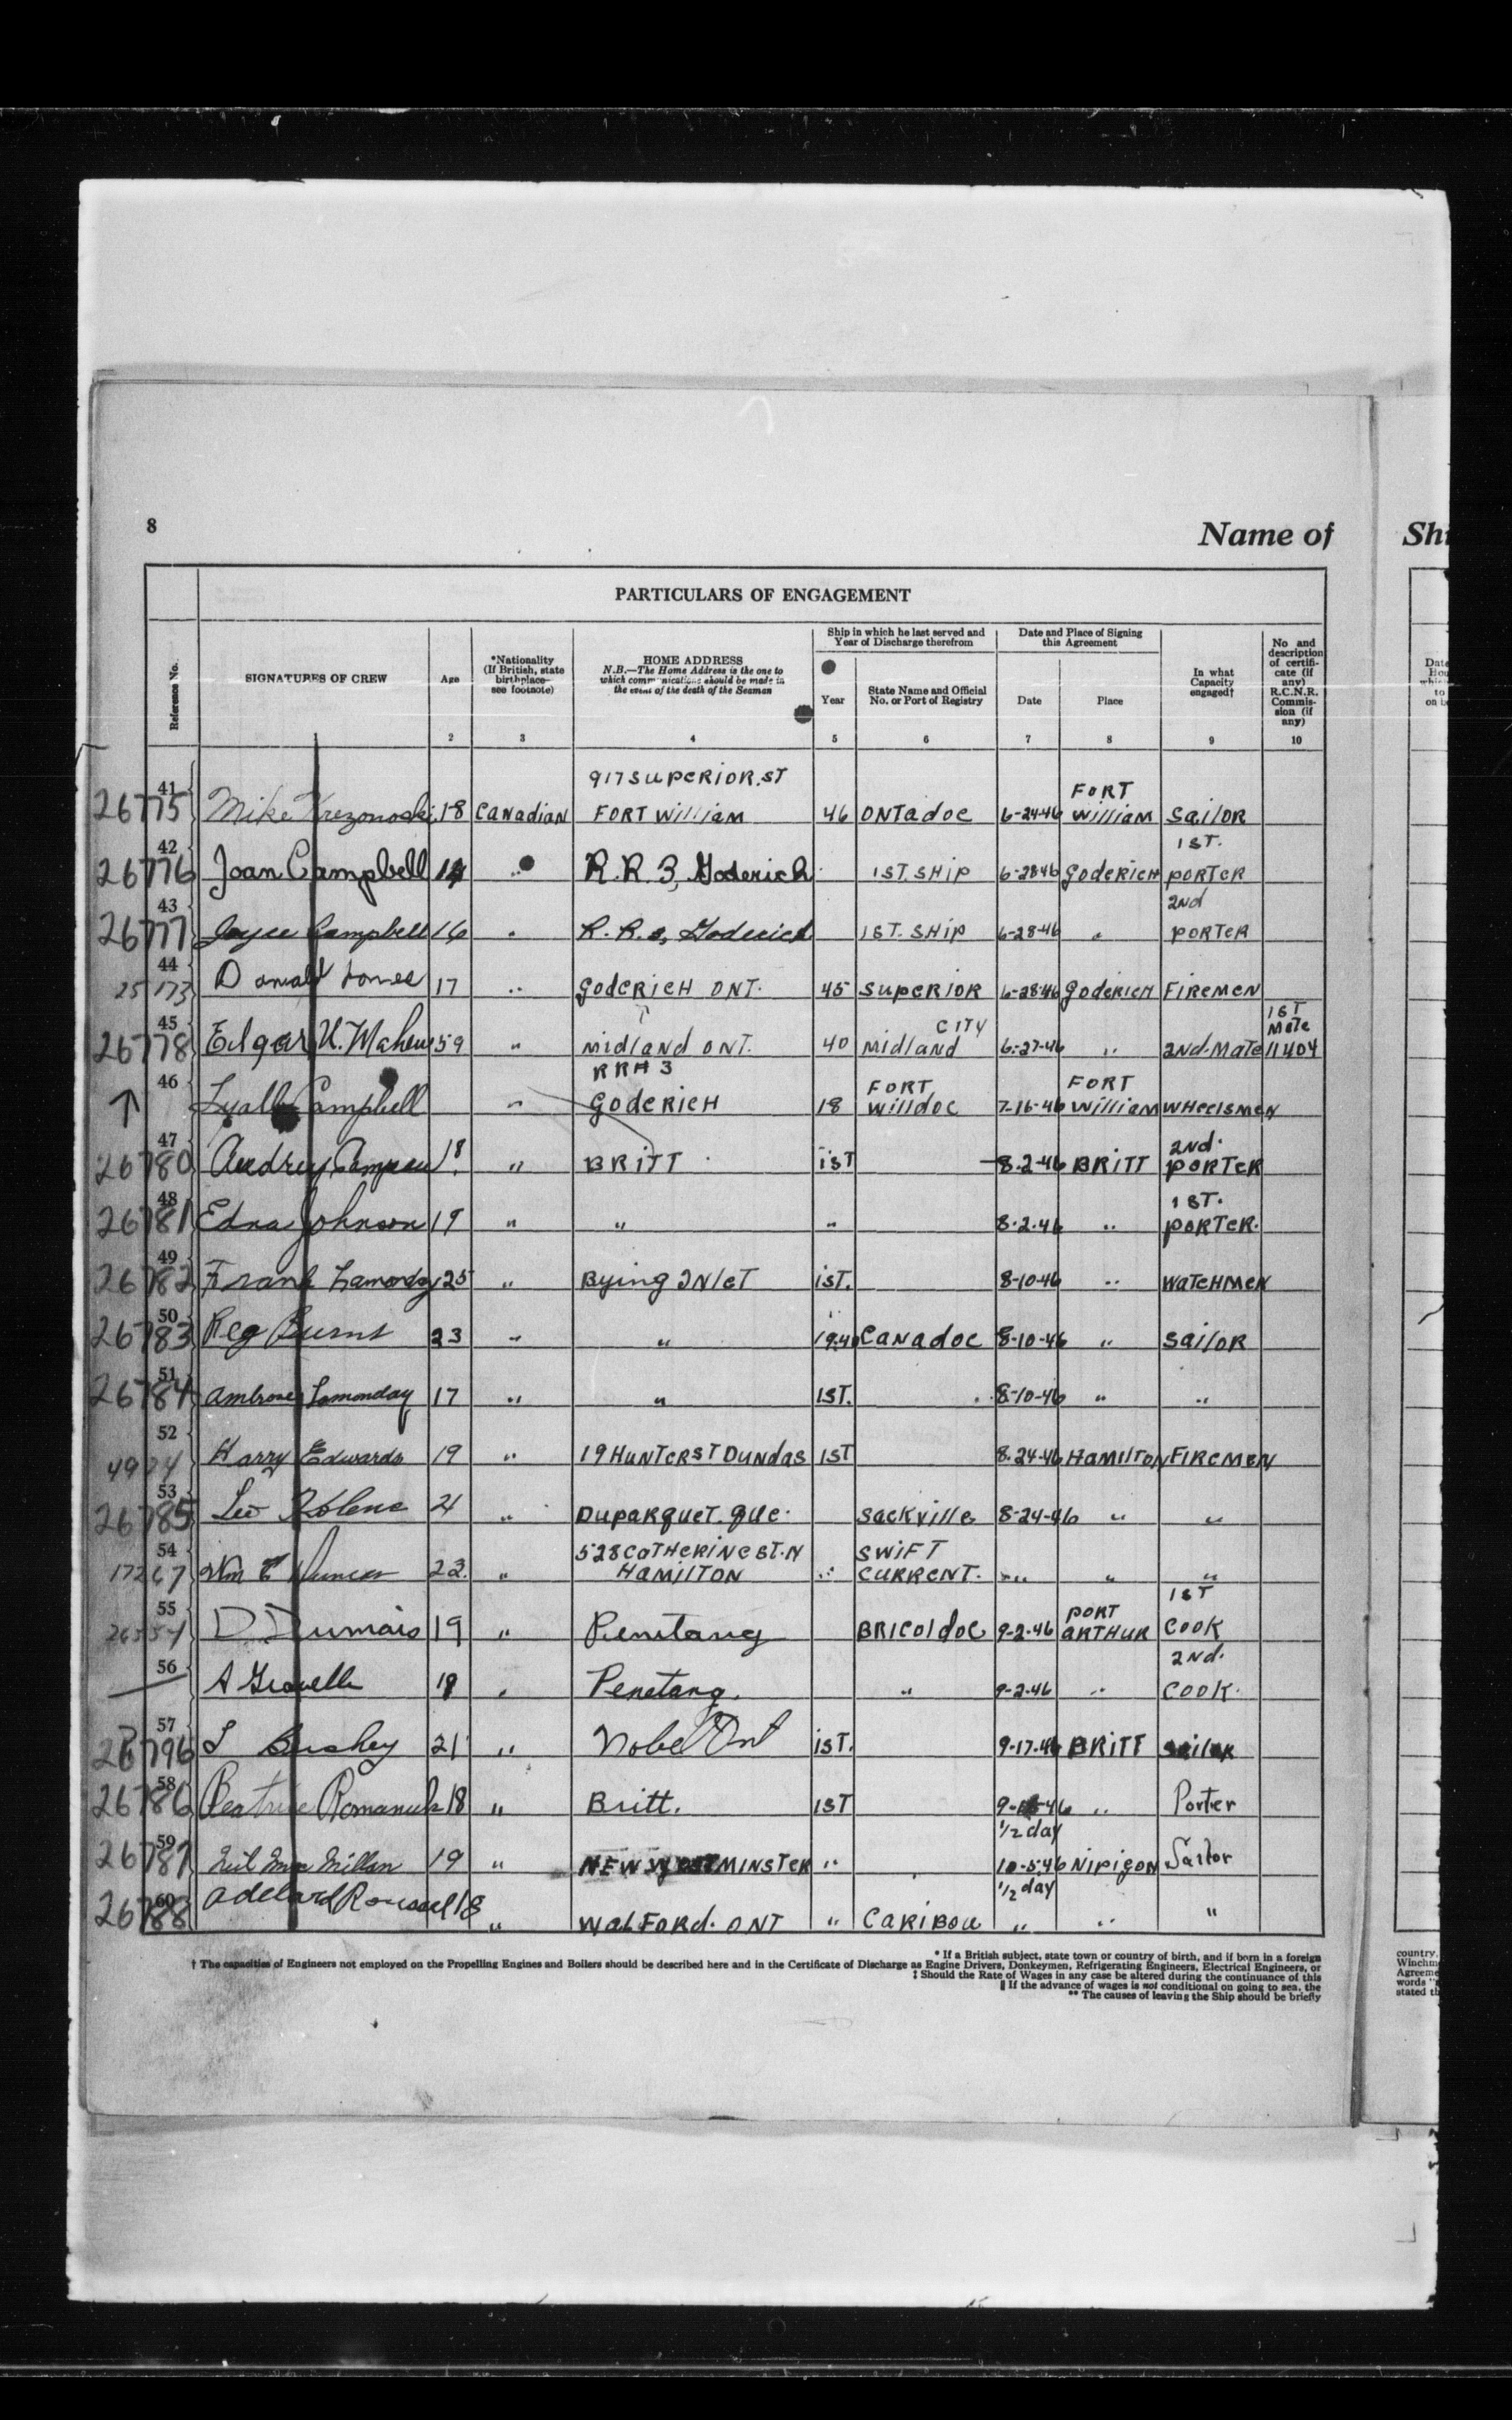 8
Name of
Shi
PARTICULARS OF ENGAGEMENT
Reference No.
SIGNATURES OF CREW
Age
*Nationality (If British, state birthplace—see footnote)
HOME ADDRESS
N.B.—The Home Address is the one to which communications should be made in the event of the death of the Seaman
Ship in which he last served and Year of Discharge therefrom
Year
State Name and Official No. or Port of Registry
Date and Place of Signing this Agreement
Date
Place
In what Capacity engaged†
No and description of certificate (if any) R.C.N.R. Commission (if any)
2 3 4 5 6 7 8 9 10
917 SUPERIOR.ST
26775 41 Mike Krezonoski 18 CANADIAN FORT WILLIAM 46 ONTADOC 6-24-46 FORT WILLIAM SAILOR
26776 42 Joan Campbell 19 " R.R. 3, Goderich 1ST. SHIP 6-28-46 GODERICH 1ST. PORTER
26777 43 Joyce Campbell 16 " R.R. 3, Goderich 1ST. SHIP 6-28-46 " 2ND PORTER
25173 44 Donald Jones 17 " GODERICH ONT. 45 SUPERIOR 6-28-46 GODERICH FIREMEN
26778 45 Edgar 59 " MIDLAND ONT. 40 MIDLAND CITY 6-27-46 " 2ND-MATE 1ST MATE 11404
46 Lyall Campbell " RR# 3 GODERICH 18 FORT WILLDOC 7-16-46 FORT WILLIAM WHEELSMEN
26780 47 Audrey 18 " BRITT 1ST 8-2-46 BRITT 2ND. PORTER
26781 48 Edna Johnson 19 " " " 8-2-46 " 1ST. PORTER.
26782 49 Frank Lamonday 25 " BYING INLET 1ST. 8-10-46 " WATCHMEN
26783 50 Reg Burns 23 " " 1940 CANADOC 8-10-46 " SAILOR
26784 51 Ambrose Lamonday 17 " " 1ST. 8-10-46 " "
52 Harry Edwards 19 " 19 HUNTER ST DUNDAS 1ST 8-24-46 HAMILTON FIREMEN
26785 53 Leo 21 " DUPARQUET. QUE. SACKVILLE 8-24-46 " "
17267 54 Wm E Duncan 22 " 528 CATHERINE ST. N HAMILTON " SWIFT CURRENT. " " "
55 D Dumais 19 " Penetang BRICOLDOC 9-2-46 PORT ARTHUR 1ST COOK
56 A Gravelle 18 " Penetang. " 9-2-46 " 2ND. COOK.
26796 57 L Bushey 21 " Nobel Ont 1ST. 9-17-46 BRITT SAILOR
26786 58 Beatrice Romanuk 18 " Britt. 1ST 9-18-46 " Porter
1/2 day
26787 59 Neil Mac Millan 19 " NEW WESTMINSTER " 10-5-46 NIPIGON Sailor
1/2 day
26788 60 Adelard Roussel 18 " WALFORD. ONT " CARIBOU " " "
* If a British subject, state town or country of birth, and if born in a foreign
† The capacities of Engineers not employed on the Propelling Engines and Boilers should be described here and in the Certificate of Discharge as Engine Drivers, Donkeymen, Refrigerating Engineers, Electrical Engineers, or
‡ Should the Rate of Wages in any case be altered during the continuance of this
‖ If the advance of wages is not conditional on going to sea, the
** The causes of leaving the Ship should be briefly
country.
Winchm
Agreeme
words "
stated th